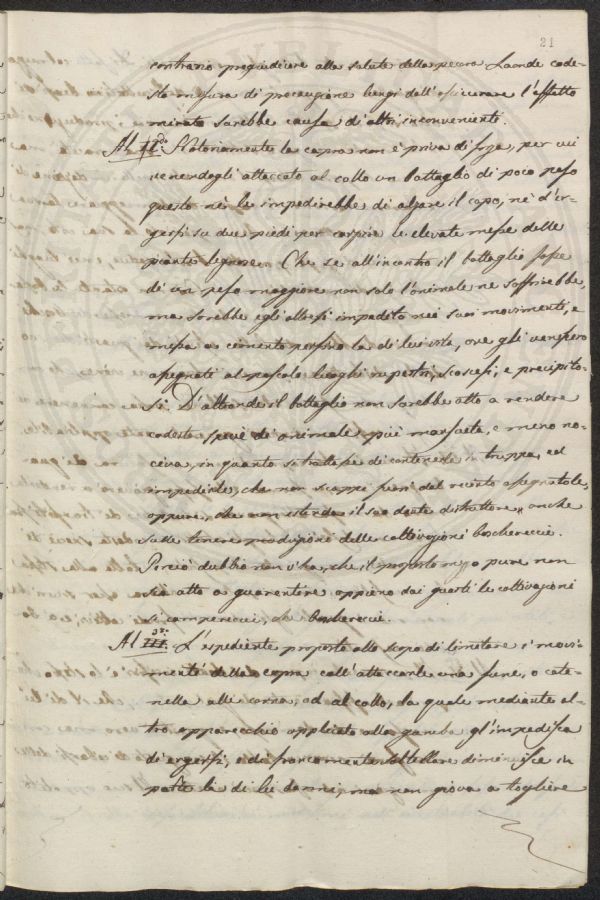 21
contrario pregiudicare alla salute della pecora. Laonde code-
sta misura di precauzione lungi dall'assicurare l'effetto
mirato sarebbe causa di altri inconvenienti.
Al II.do Notoriamente la capra non è priva di forza, per cui
venendogli attaccato al collo un battaglio di poco peso
questo nè le impedirebbe di alzare il capo, nè d'er-
gersi su due piedi per carpire le elevate messe delle
piante legnose. Che se all'incontro il battaglio fosse
di un peso maggiore non solo l'animale ne soffrirebbe,
ma sarebbe egli altresì impedito nei suoi movimenti, e
messa a cimento persino la di lui vita, ove gli venissero
assegnati al pascolo luoghi rupestri, scoscesi, e precipito-
si. D'altronde il battaglio non sarebbe atto a rendere
codesta specie di animale più mansueta, e meno no-
civa, in quanto si trattasse di contenerle in truppa, ed
impedirle, che non scappi fuori del recinto assegnatole,
oppure, che non estenda il suo dente distruttore, anche
sulle tenere produzioni delle coltivazioni boschereccie.
Perciò dubbio non v'ha, che il proposto mezzo pure non
sia atto a guarentire appieno dai guasti le coltivazioni
sì campereccie, che boschereccie.
Al III.zo L'espediente proposto allo scopo di limitare i movi-
menti della capra coll'attaccarle una fune, o cate-
nella alle corna, od al collo, la quale mediante al-
tro apparecchio applicato alla gamba gl'impedisca
d'ergersi, e di francamente saltellare diminuisce in
parte li di lei danni, ma non giova a togliere